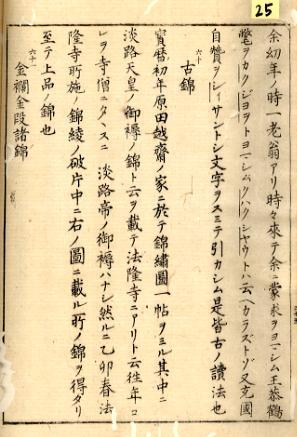 25
余幼年ノ時一老翁アリ時々來テ余ニ蒙求ヲヨマシム王恭鶴
氅ヲカクジヨヲトヨマシムクハクシヤウトハ云ヘカラズトゾ又充國
自賛ヲシイサントシ文字ヲスミテ引カシム是皆古ノ讀法也
六十
古錦
寳暦初年原田越齋ノ家ニ於テ錦繡圖一帖ヲミル其中ニ
淡路天皇ノ御褥ノ錦ト云ヲ載テ法隆寺ニアリト云往年コ
レヲ寺僧ニタヽスニ淡路帝ノ御褥ハナシ然ルニ乙卯春法
隆寺所施ノ錦綾ノ破片中ニ右ノ圖ニ載ル所ノ錦ヲ得タリ
至テ上品ノ錦也
六十一
金襴金段諸錦